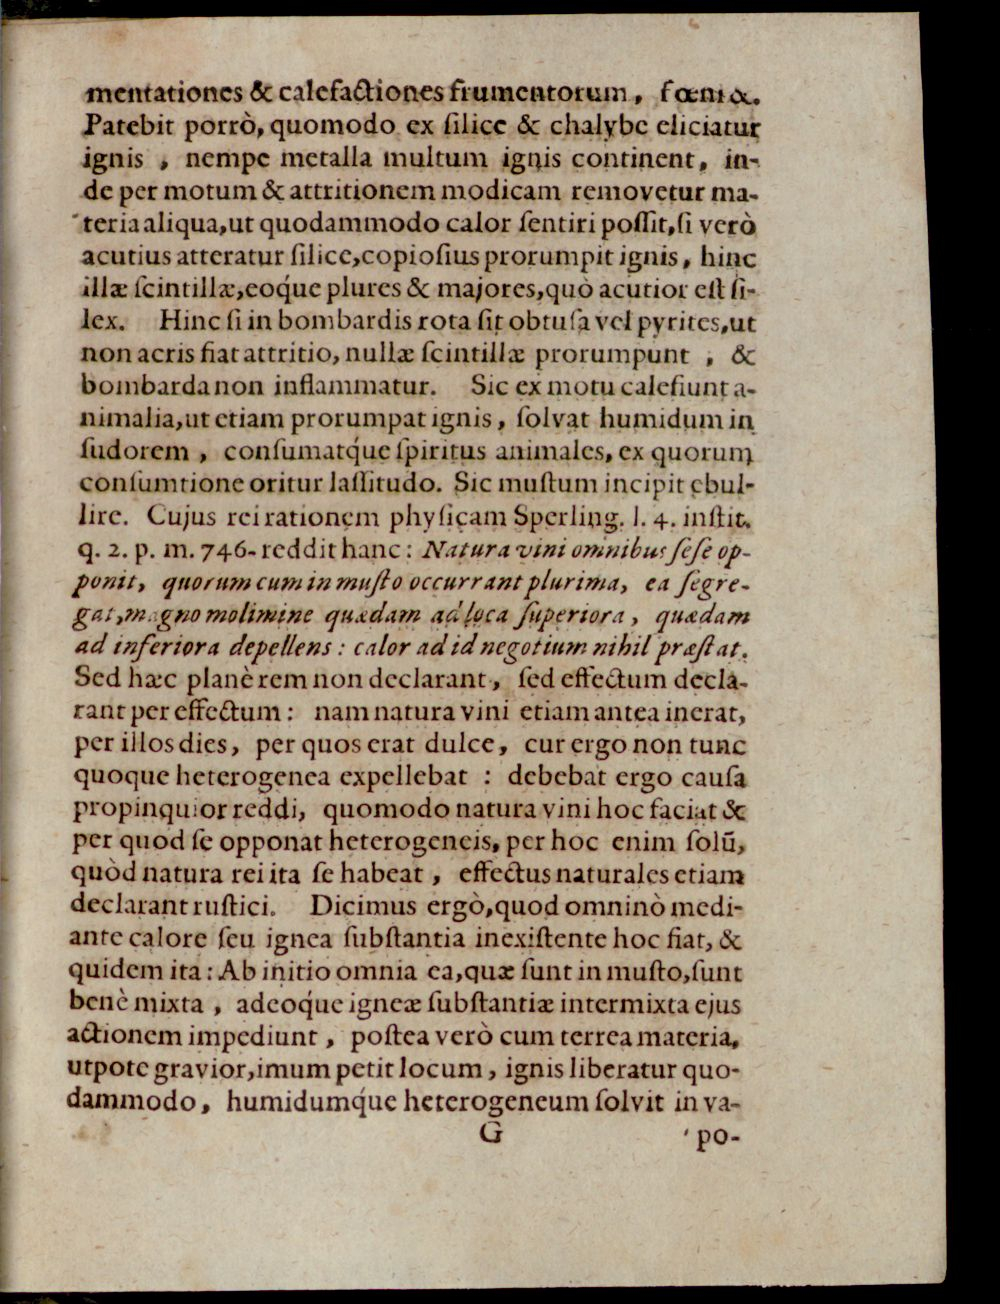 mentationes & calefactiones frumentorum, fœni &.
Patebit porrò, quomodo ex ſilice & chalybe eliciatur
ignis , nempe metalla multum ignis continent, in-
de per motum & attritionem modicam removetur ma-
teria aliqua, ut quodammodo calor ſentiri poſſit, ſi verò
acutius atteratur ſilice, copioſius prorumpit ignis, hinc
illæ ſcintillæ, eoq́ue plures & majores, quò acutior eſt ſi-
lex. Hinc ſi in bombardis rota ſit obtuſa vel pyrites, ut
non acris fiat attritio, nullæ ſcintillæ prorumpunt , &
bombarda non inflammatur. Sic ex motu calefiunt a-
nimalia, ut etiam prorumpat ignis, ſolvat humidum in
ſudorem , conſumatq́ue ſpiritus animales, ex quorum
conſumtione oritur laſſitudo. Sic muſtum incipit ebul-
lire. Cujus rei rationem phyſicam Sperling. l. 4. inſtit.
q. 2. p. m. 746. reddit hanc: Natura vini omnibus ſeſe op-
ponit, quorum cum in muſto occurrant plurima, ea ſegre-
gat, magno molimine quædam ad loca ſuperiora, quædam
ad inferiora depellens: calor ad id negotium nihil præſtat.
Sed hæc planè rem non declarant, ſed effectum decla-
rant per effectum: nam natura vini etiam antea inerat,
per illos dies, per quos erat dulce, cur ergo non tunc
quoque heterogenea expellebat : debebat ergo cauſa
propinquior reddi, quomodo natura vini hoc faciat &
per quod ſe opponat heterogeneis, per hoc enim ſolũ,
quòd natura rei ita ſe habeat, effectus naturales etiam
declarant ruſtici. Dicimus ergò, quod omninò medi-
ante calore ſeu ignea ſubſtantia inexiſtente hoc fiat, &
quidem ita: Ab initio omnia ea, quæ ſunt in muſto, ſunt
benè mixta , adeoq́ue igneæ ſubſtantiæ intermixta ejus
actionem impediunt , poſtea verò cum terrea materia,
utpote gravior, imum petit locum, ignis liberatur quo-
dammodo, humidumq́ue heterogeneum ſolvit in va-
G po-